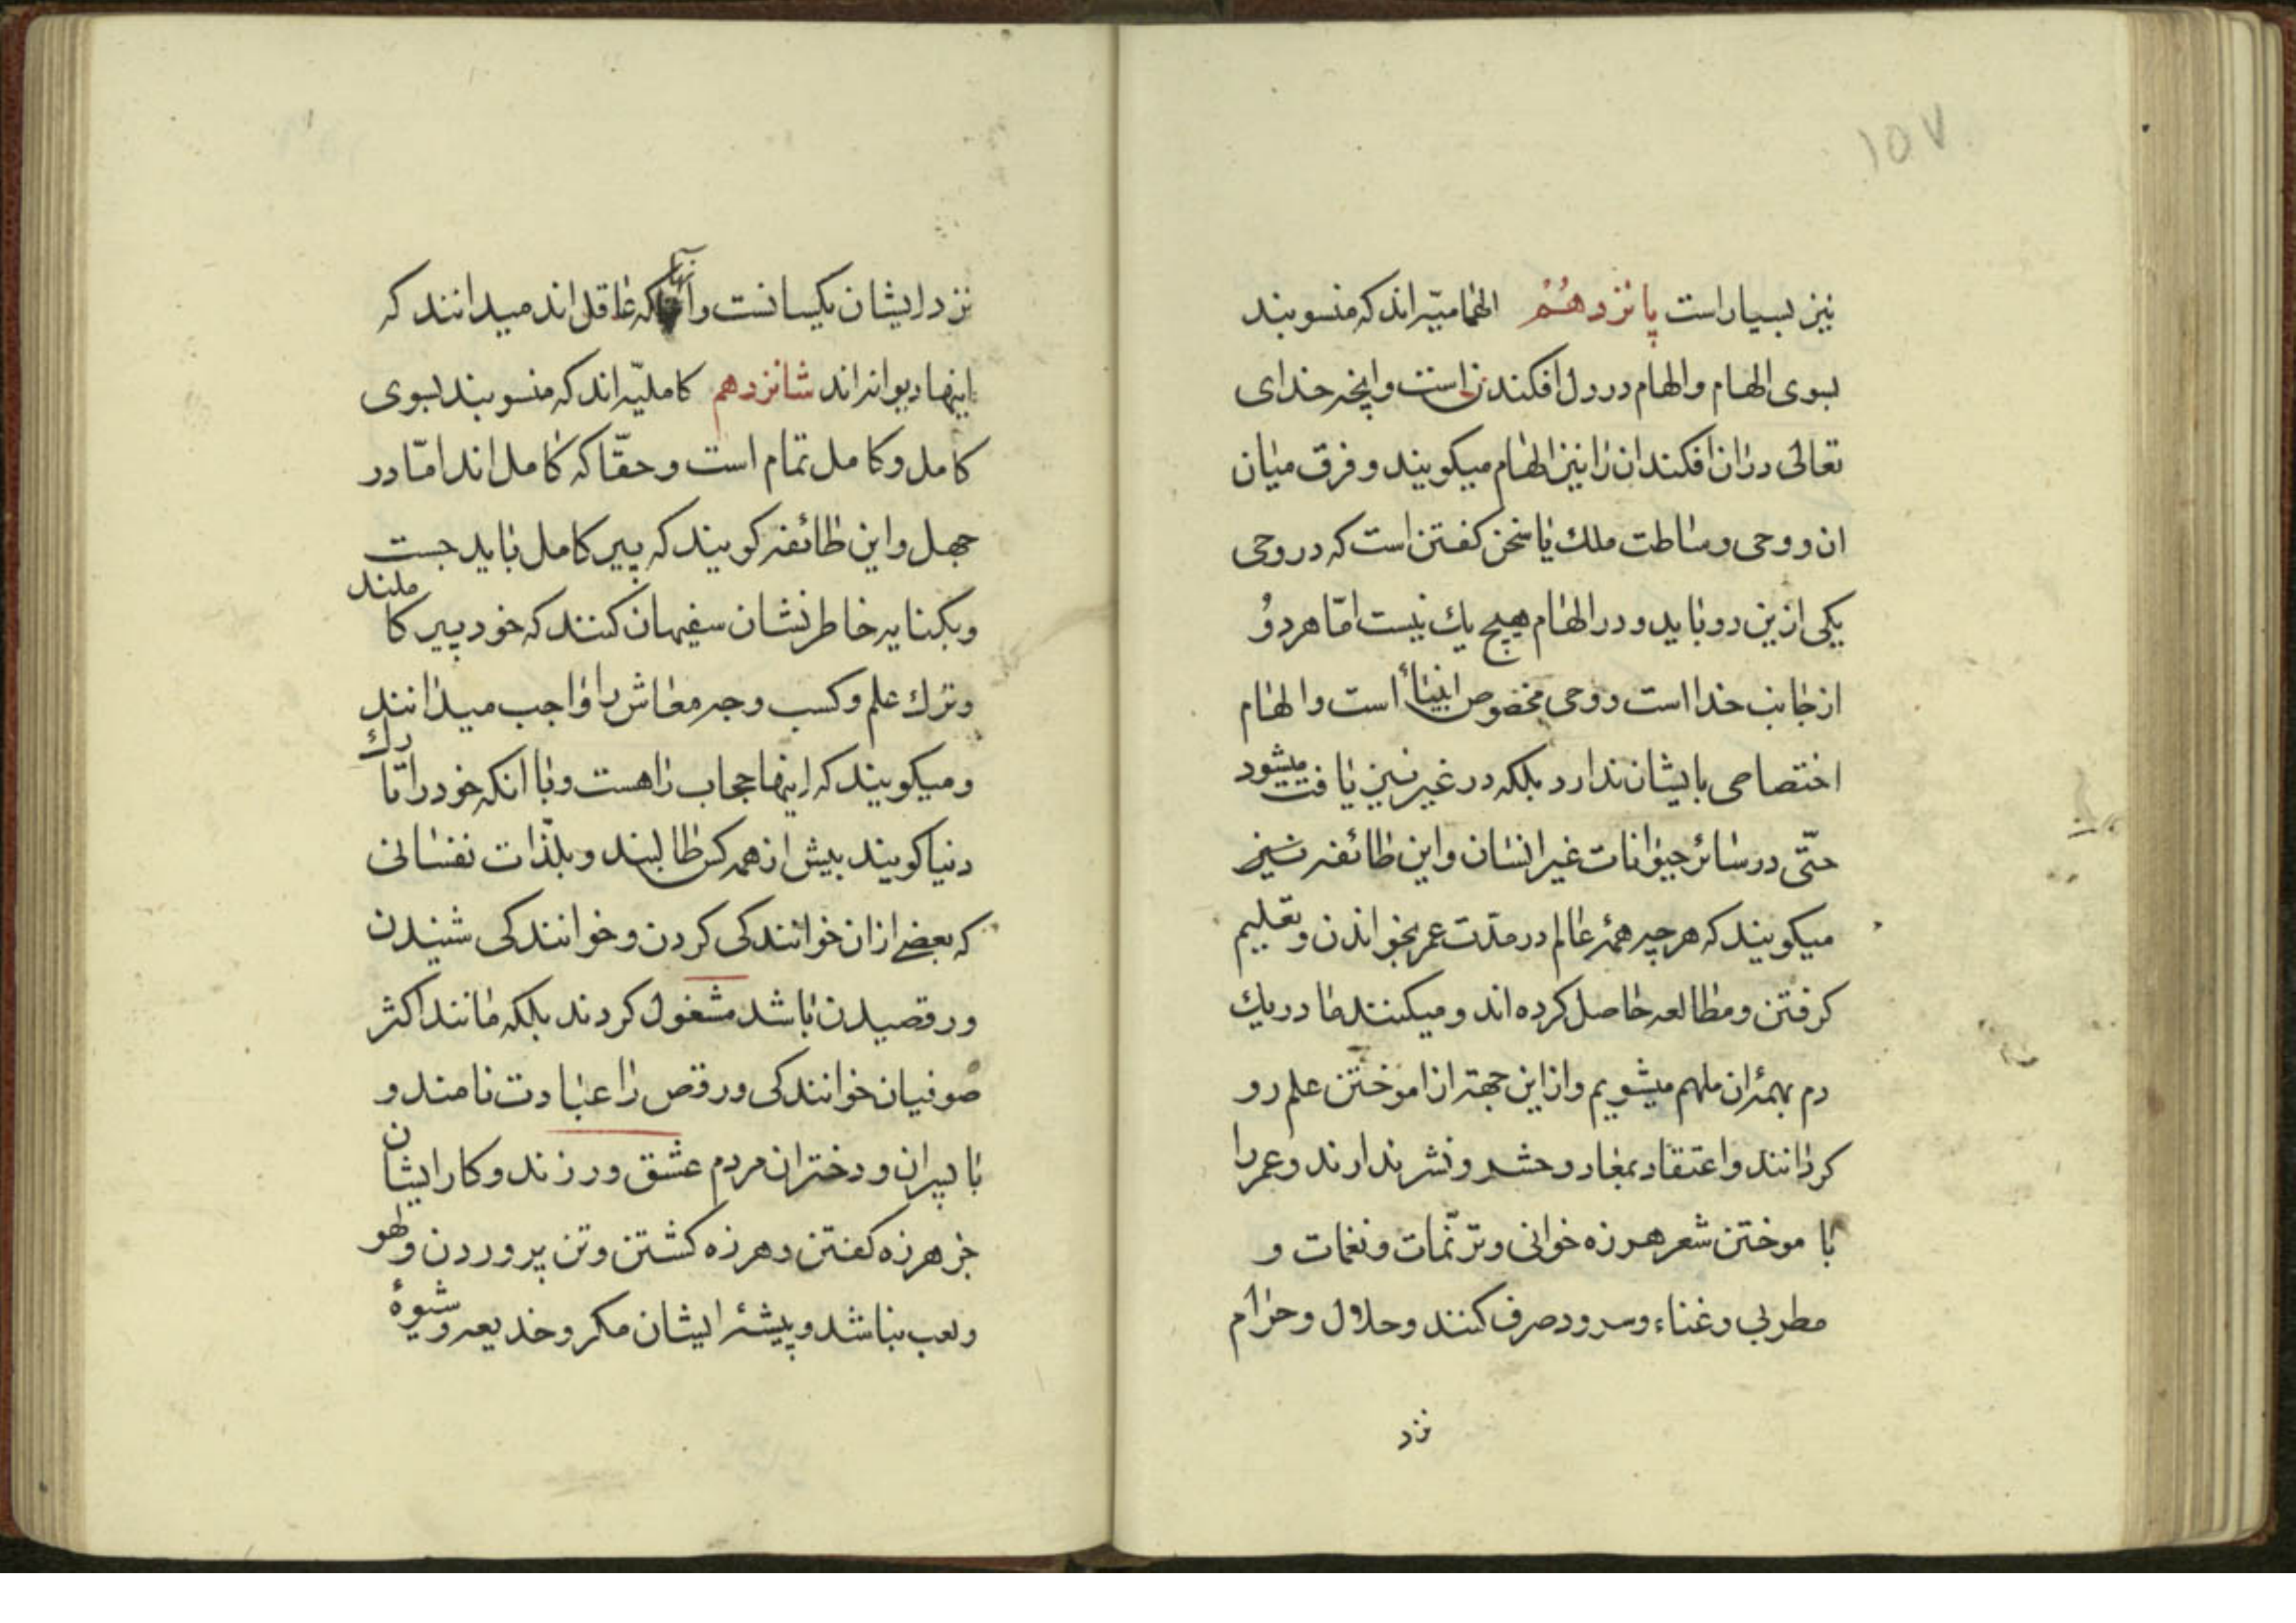 ١٥٧
نیز بسیار است پانزدهم الهامیّه‌اند که منسوبند
بسوی الهام و الهام در دل افکندن است و اینچه خدای
تعالی در ان افکند ان را نیز الهام میکویند و فرق میان
ان و وحی وساطت ملك یا سخن کفتن است که در وحی
یکی ازین دو باید و در الهام هیچ یك نیست امّا هر دو
از جانب خدا است و وحی مخصوص انبیاء است و الهام
اختصاصی بایشان ندارد بلکه در غیر نیز یافت میشود
حتّی در سائر حیوانات غیر انسان و این طائفه نیز
میکویند که هر چیه همهٔ عالم در مدّت عمر بخواندن و تعلیم
کرفتن و مطالعه حاصل کرده‌اند و میکنند ما در یك
دم بهمهٔ ان ملهم میشویم و از این جهته از اموختن علم رو
کردانند و اعتقاد بمعاد و حشر و نشر ندارند و عمر را
با موختن شعر هرزه خوانی و ترنّمات و نغمات و
مطربی و غناء و سرود صرف کنند و حلال و حرام
نزد
نزد ایشان یکسانست و آنها که عاقل‌اند میدانند که
اینها دیوانه‌اند شانزدهم کاملیّه‌اند که منسوبند بسوی
کامل و کامل تمام است و حقّا که کامل‌اند امّا در
جهل و این طائفه کویند که پیر کامل باید جست
و بکنایه خاطرنشان سفیهان کنند که خود پیر کاملند
و ترك علم و کسب وجه معاش را واجب میدانند
و میکویند که اینها حجاب راهست و با انکه خود را تارك
دنیا کویند بیش از همه کس طالبند و بلذّات نفسانی
که بعضے از ان خوانندکی کردن و خوانندکی شنیدن
و رقصیدن باشد مشغول کردند بلکه مانند اکثر
صوفیان خوانندکی و رقص را عبادت نامند و
با پسران و دختران مردم عشق ورزند و کار ایشان
جز هرزه کفتن و هرزه کشتن و تن پروردن و لهو
و لعب نباشد و پیشهٔ ایشان مکر و خدیعه و شیوهٔ